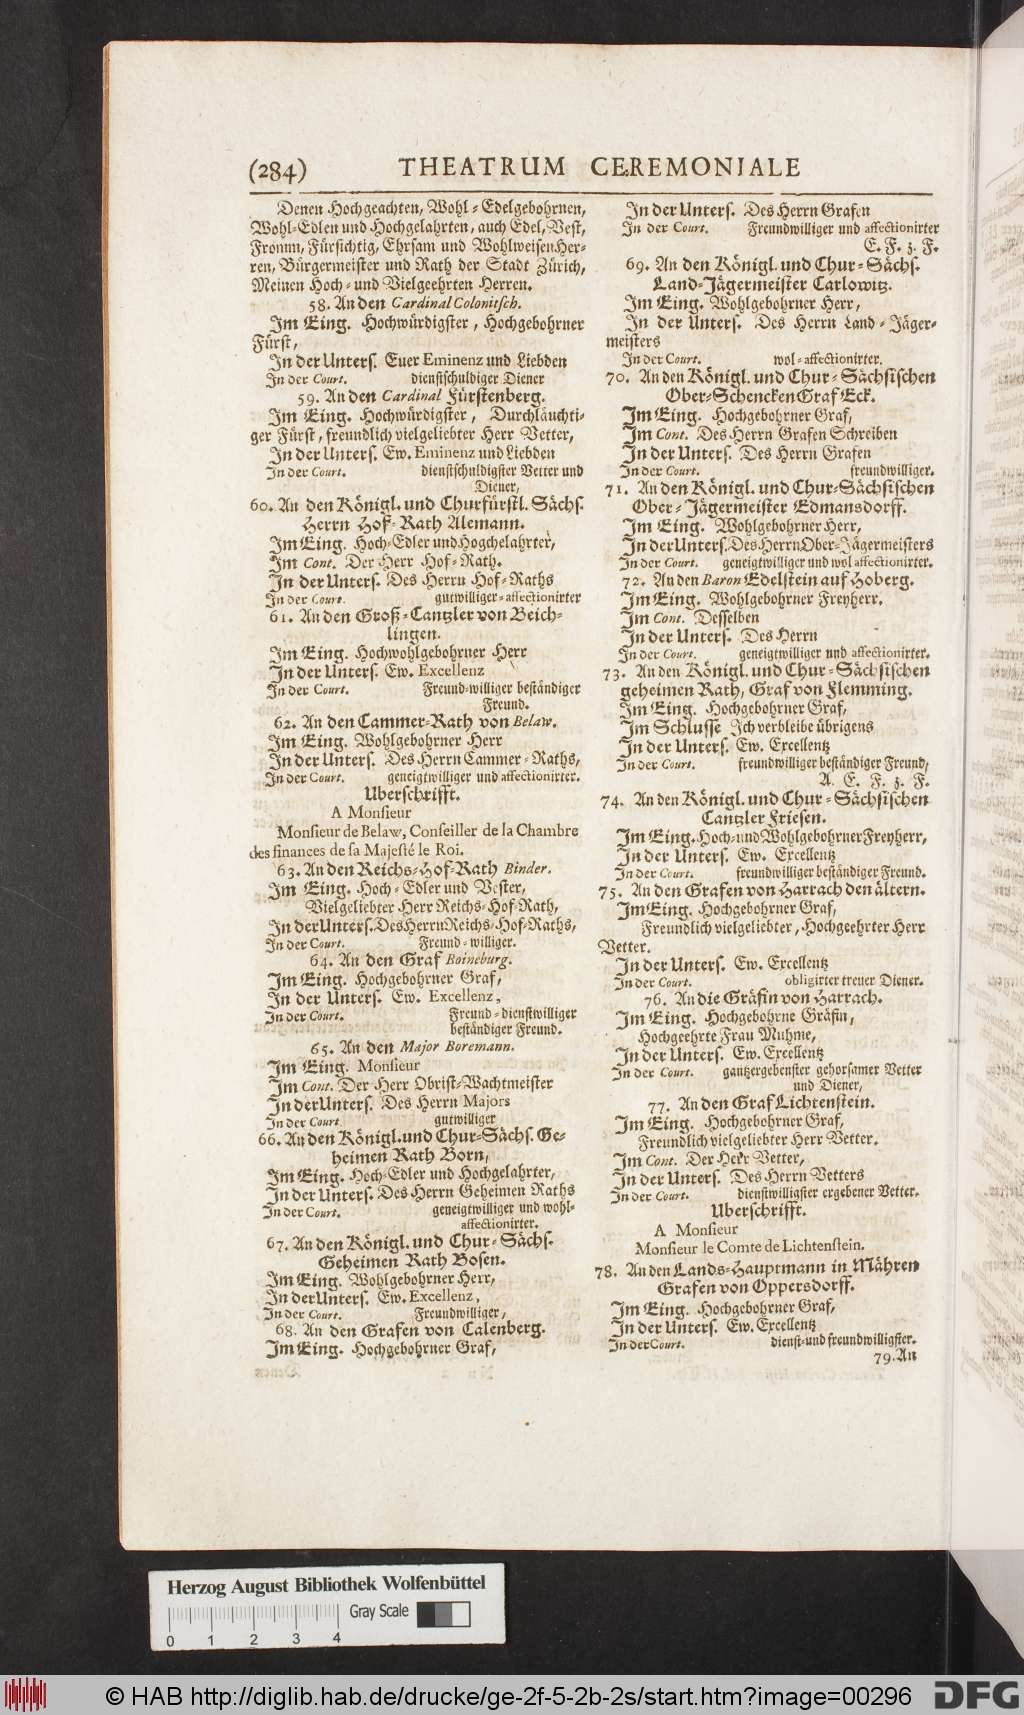 (284) THEATRUM CEREMONIALE
Denen Hochgeachten, Wohl-Edelgebohrnen,
Wohl-Edlen und Hochgelahrten, auch Edel, Vest,
Fromm, Fürsichtig, Ehrsam und WohlweisenHer-
ren, Bürgermeister und Rath der Stadt Zürich,
Meinen Hoch- und Vielgeehrten Herren.
58. An den Cardinal Colonitsch.
Im Eing. Hochwürdigster, Hochgebohrner
Fürst,
In der Unters. Euer Eminenz und Liebden
In der Court. dienstschuldiger Diener
59. An den Cardinal Fürstenberg.
Im Eing. Hochwürdigster, Durchläuchti-
ger Fürst, freundlich vielgeliebter Herr Vetter,
In der Unters. Ew. Eminenz und Liebden
In der Court. dienstschuldigster Vetter und
Diener,
60. An den Königl. und Churfürstl. Sächs.
Herrn Hof-Rath Alemann.
Im Eing. Hoch-Edler und Hogchelahrter,
Im Cont. Der Herr Hof-Rath.
In der Unters. Des Herrn Hof-Raths
In der Court. gutwilliger-affectionirter
61. An den Groß-Cantzler von Beich-
lingen.
Im Eing. Hochwohlgebohrner Herr
In der Unters. Ew. Excellenz
In der Court. Freund-williger beständiger
Freund.
62. An den Cammer-Rath von Belaw.
Im Eing. Wohlgebohrner Herr
In der Unters. Des Herrn Cammer-Raths,
In der Court. geneigtwilliger und affectionirter.
Uberschrifft.
A Monsieur
Monsieur de Belaw, Conseiller de la Chambre
des finances de sa Majesté le Roi.
63. An den Reichs-Hof-Rath Binder.
Im Eing. Hoch-Edler und Vester,
Vielgeliebter Herr Reichs-Hof-Rath,
In der Unters. Des Herrn Reichs-Hof-Raths,
In der Court. Freund-williger.
64. An den Graf Boineburg.
Im Eing. Hochgebohrner Graf,
In der Unters. Ew. Excellenz,
In der Court. Freund-dienstwilliger
beständiger Freund.
65. An den Major Boremann.
Im Eing. Monsieur
Im Cont. Der Herr Obrist-Wachtmeister
In der Unters. Des Herrn Majors
In der Court gutwilliger
66. An den Königl. und Chur-Sächs. Ge-
heimen Rath Born,
Im Eing. Hoch-Edler und Hochgelahrter,
In der Unters. Des Herrn Geheimen Raths
In der Court. geneigtwilliger und wohl-
affectionirter.
67. An den Königl. und Chur-Sächs.
Geheimen Rath Bosen.
Im Eing. Wohlgebohrner Herr,
In der Unters. Ew. Excellenz,
In der Court. Freundwilliger,
68. An den Grafen von Calenberg.
Im Eing. Hochgebohrner Graf,
In der Unters. Des Herrn Grafen
In der Court. Freundwilliger und affectionirter
E. F. z. F.
69. An den Königl. und Chur-Sächs.
Land-Jägermeister Carlowitz.
Im Eing. Wohlgebohrner Herr,
In der Unters. Des Herrn Land-Jäger-
meisters
In der Court. wol-affectionirter.
70. An den Königl. und Chur-Sächsischen
Ober-Schencken Graf Eck.
Im Eing. Hochgebohrner Graf,
Im Cont. Des Herrn Grafen Schreiben
In der Unters. Des Herrn Grafen
In der Court. freundwilliger.
71. An den Königl. und Chur-Sächsischen
Ober-Jägermeister Edmansdorff.
Im Eing. Wohlgebohrner Herr,
In der Unters. Des Herrn Ober-Jägermeisters
In der Court. geneigtwilliger und wol affectionirter.
72. An den Baron Edelstein auf Hoberg.
Im Eing. Wohlgebohrner Freyherr.
Im Cont. Desselben
In der Unters. Des Herrn
In der Court. geneigtwilliger und affectionirter.
73. An den Königl. und Chur-Sächsischen
geheimen Rath, Graf von Flemming.
Im Eing. Hochgebohrner Graf,
Im Schlusse Ich verbleibe übrigens
In der Unters. Ew. Excellentz
In der Court. freundwilliger beständiger Freund,
A. E. F. z. F.
74. An den Königl. und Chur-Sächsischen
Cantzler Friesen.
Im Eing. Hoch- und Wohlgebohrner Freyherr,
In der Unters. Ew. Excellentz
In der Court. freundwilliger beständiger Freund.
75. An den Grafen von Harrach den ältern.
Im Eing. Hochgebohrner Graf,
Freundlich vielgeliebter, Hochgeehrter Herr
Vetter.
In der Unters. Ew. Excellentz
In der Court. obligirter treuer Diener.
76. An die Gräfin von Harrach.
Im Eing. Hochgebohrne Gräfin,
Hochgeehrte Frau Muhme,
In der Unters. Ew. Excellentz
In der Court. gantzergebenster gehorsamer Vetter
und Diener,
77. An den Graf Lichtenstein.
Im Eing. Hochgebohrner Graf,
Freundlich vielgeliebter Herr Vetter.
Im Cont. Der Herr Vetter,
In der Unters. Des Herrn Vetters
In der Court. dienstwilligster ergebener Vetter.
Uberschrifft.
A Monsieur
Monsieur le Comte de Lichtenstein.
78. An den Lands-Hauptmann in Mähren
Grafen von Oppersdorff.
Im Eing. Hochgebohrner Graf,
In der Unters. Ew. Excellentz
In der Court. dienst- und freundwilligster.
79. An
Herzog August Bibliothek Wolfenbüttel
Gray Scale
0 1 2 3 4
© HAB http://diglib.hab.de/drucke/ge-2f-5-2b-2s/start.htm?image=00296 DFG